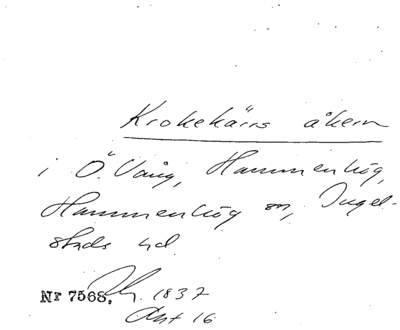 Krokekärrs åkern
i Ö. Vång, Hammenhög,
Hammenhög sn, Ingel-
stads hd
Nr 7568. 1837
Akt 16